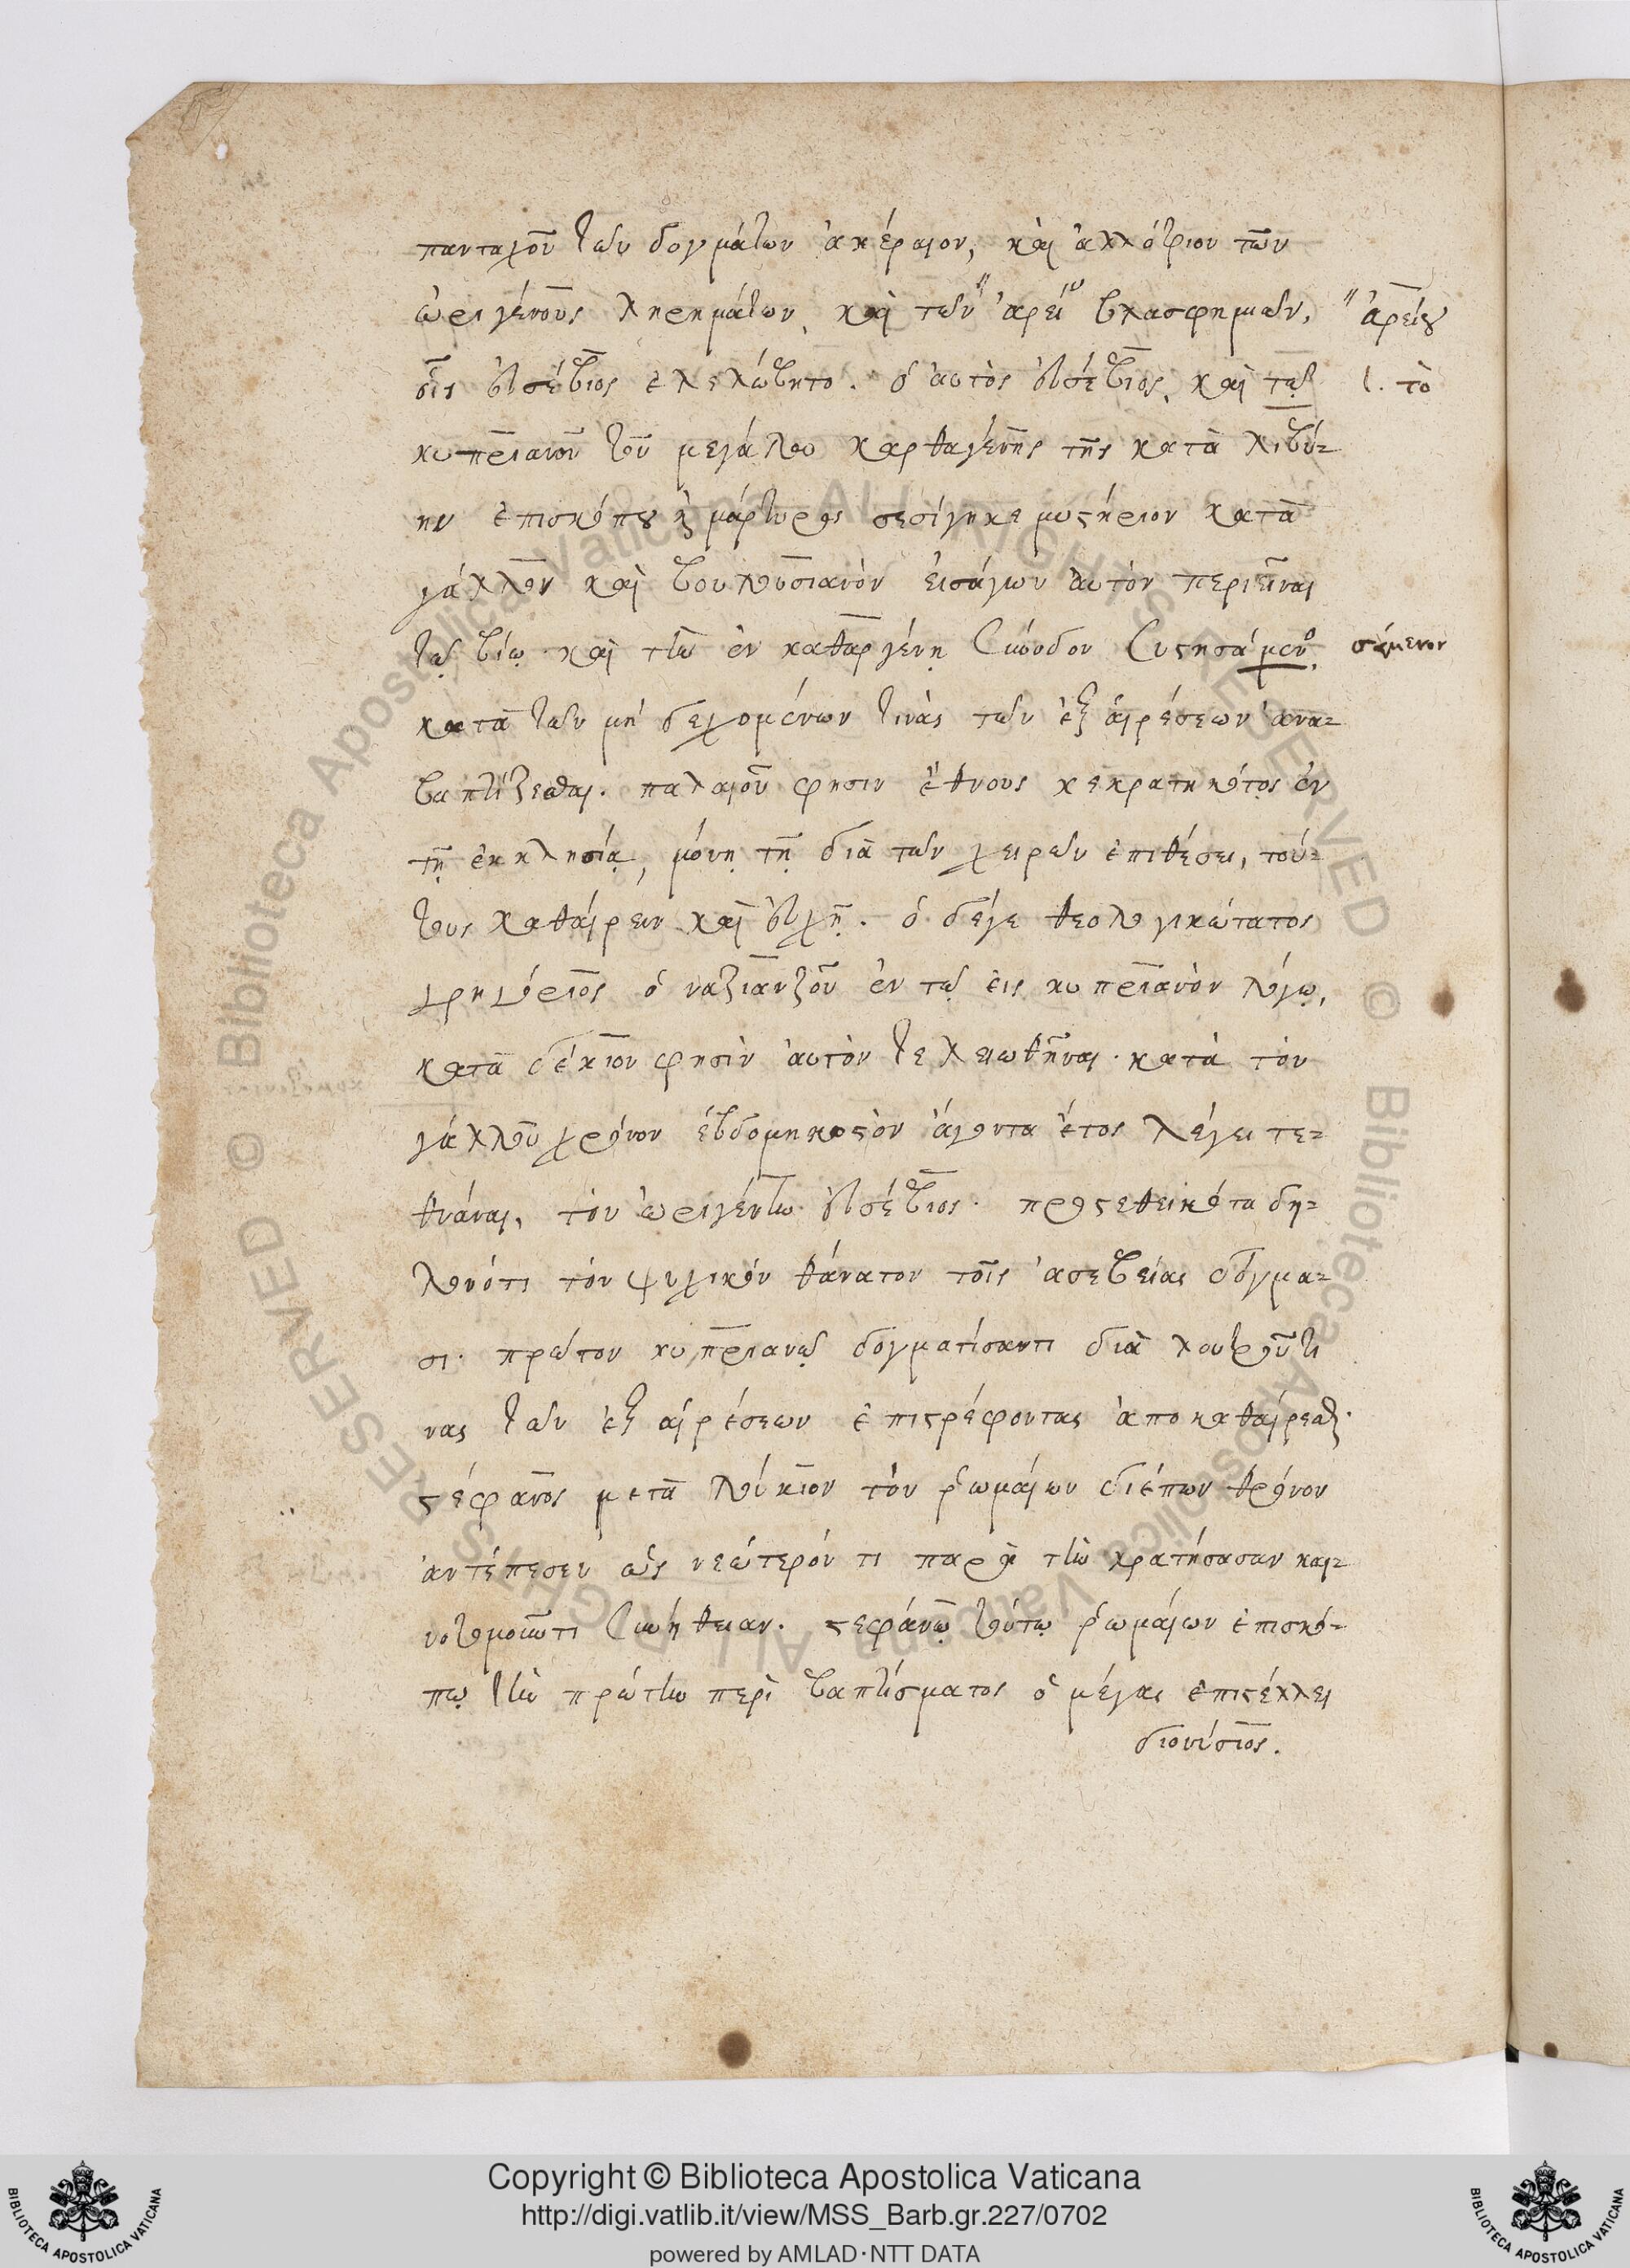 πανταχοῦ τῶν δογμάτων ἀκέραιον, καὶ ἀλλότριον τῶν
ὠριγένους ληρημάτων, καὶ τῶν " ἀρεί βλασφημιῶν, " ἀρείου
οἷς εὐσέβιος ἐλελώβητο. ὁ αὐτὸς εὐσέβιος, καὶ τῷ l. τὸ
κυπριανοῦ τοῦ μεγάλου καρθαγένης τῆς κατὰ λιβύ-
ην ἐπισκόπου καὶ μάρτυρος σεσίγηκε μυστήριον κατὰ
γάλλον καὶ βουλουσιανὸν εἰσάγων αὐτὸν περιεῖναι
τῷ βίῳ καὶ τὴν ἐν καθαργένῃ σύνοδον συστησάμενο, σάμενον
κατὰ τῶν μὴ δεχομένων τινὰς τῶν ἐξ αἱρέσεων ἀνα-
βαπτίζεσθαι. παλαιοῦ φησιν ἔθνους κεκρατηκότος ἐν
τῇ ἐκκλησίᾳ, μόνῃ τῇ διὰ τῶν χειρῶν ἐπιθέσει, τού-
τους καθαίρειν καὶ εὐχῇ. ὁ δέγε θεολογικώτατος
γρηγόριος ὁ ναζιανζοῦ ἐν τῷ εἰς κυπριανὸν λόγῳ,
κατὰ δέκιον φησὶν αὐτὸν τελειωθῆναι. κατὰ τὸν
γάλλου χρόνον ἑβδομηκοστὸν ἄγοντα ἔτος λέγει τε-
θνάναι, τὸν ὠριγένην εὐσέβιος. προστεθεικότα δη-
λονότι τὸν ψυχικὸν θάνατον τοῖς ἀσεβείας δόγμα-
σι. πρῶτον κυπριανῷ δογματίσαντι διὰ λουτροῦ τι
νας τῶν ἐξ αἱρέσεων ἐπιστρέφοντας ἀποκαθαίρεσθαι.
στέφανος μετὰ λούκιον τὸν ῥωμαίων διέπων θρόνον
ἀντέπεσεν ὡς νεώτερόν τι παρὰ τὴν κρατήσασαν και-
νοτομοῦντι συνήθειαν. στεφάνῳ τούτῳ ῥωμαίων ἐπισκό-
πῳ τὴν πρώτην περὶ βαπτίσματος ὁ μέγας ἐπιστέλλει
διονύσιος.
Copyright © Biblioteca Apostolica Vaticana
http://digi.vatlib.it/view/MSS_Barb.gr.227/0702
powered by AMLAD·NTT DATA
BIBLIOTECA APOSTOLICA VATICANA
BIBLIOTECA APOSTOLICA VATICANA
© Biblioteca Apostolica Vaticana ALL RIGHTS RESERVED © Biblioteca Apostolica Vaticana ALL RIGHTS RESERVED